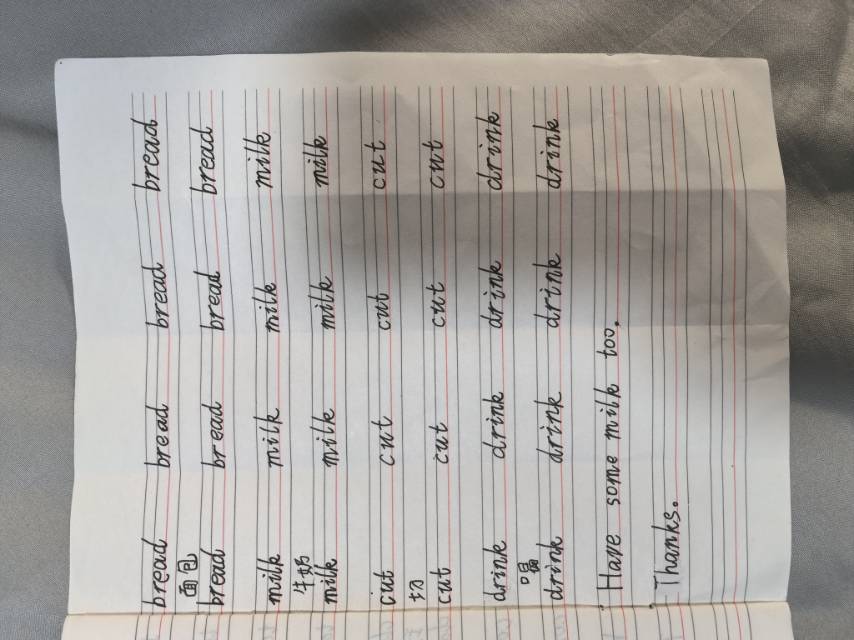 bread bread bread bread
面包
bread bread bread bread
milk milk milk milk
牛奶
milk milk milk milk
cut cut cut cut
切
cut cut cut cut
drink drink drink drink
喝
drink drink drink drink
Have some milk too.
Thanks.